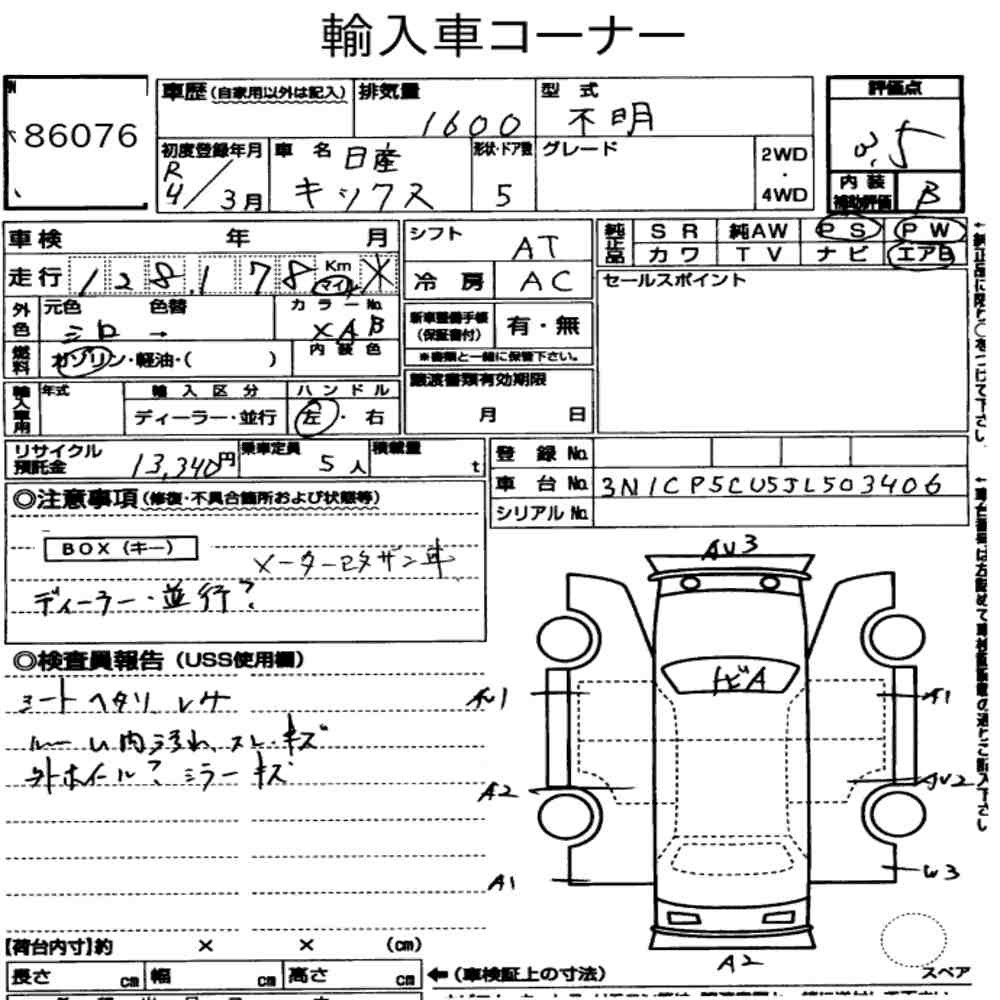 輸入車コーナー
86076
車歴 (自家用以外は記入)
排気量
1600
型式
不明
評価点
3.5
初度登録年月
R4/3月
車名 日産
キックス
形状・ドア数
5
グレード
2WD
・
4WD
内装
補助評価
B
車検 年 月
シフト
AT
純正品
SR 純AW PS PW
カワ TV ナビ エアB
走行 128,178 Km
マイル
冷房 AC
セールスポイント
外色
元色 色替 カラーNo.
シロ → XAB
新車整備手帳
(保証書付)
有・無
※書類と一緒に保管下さい。
燃料
ガソリン・軽油・( )
内装色
輸入車用
年式
輸入区分 ハンドル
ディーラー・並行 左・右
譲渡書類有効期限
月 日
リサイクル
預託金
13,340円
乗車定員
5人
積載量
t
登録No.
車台No. 3N1CP5CU5JL503406
シリアルNo.
◎注意事項(修復・不具合箇所および状態等)
BOX(キー)
メーター改ザン車
ディーラー・並行?
◎検査員報告(USS使用欄)
シートヘタリ レサ
ルーム内汚れ、スレ・キズ
外ホイール? ミラーキズ
AU3
トビA
A1
A2
AU2
A1
W3
A2
スペア
【荷台内寸】約 × × (cm)
長さ cm 幅 cm 高さ cm
←(車検証上の寸法)